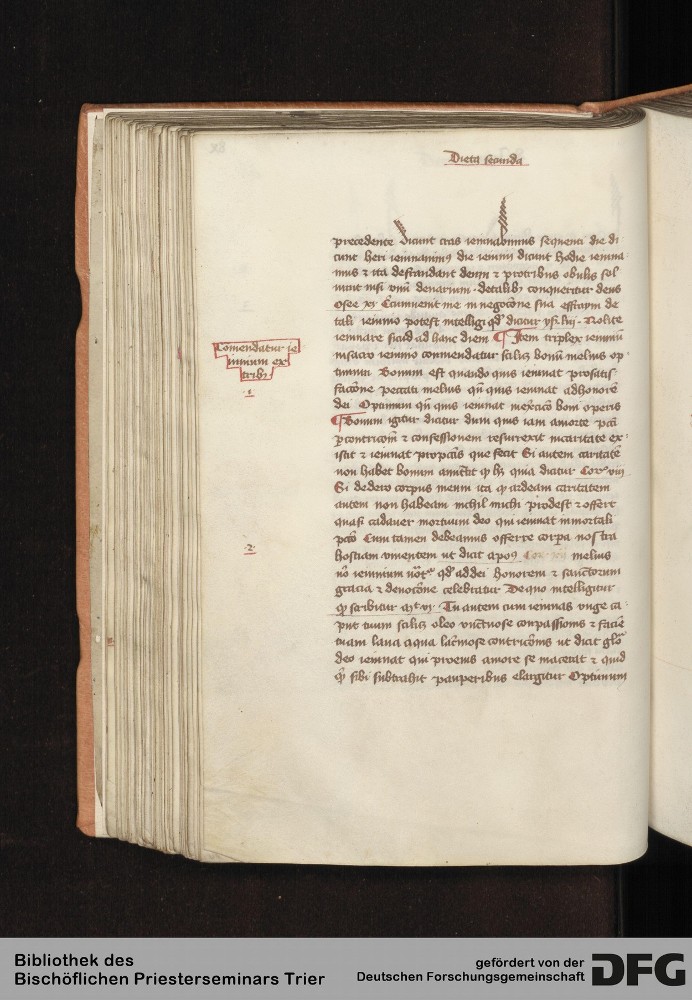 Dieta secunda
precedente dicunt cras ieiunabimus sequenti die di
cunt heri ieiunauimꝰ die ieiunii dicunt hodie ieiuna
mus ⁊ ita defraudant deum ⁊ pro tribus obulis sol
uunt nisi vnū denarium · de talibꝫ conqueritur deus
Osee xj Circumuenit me in negocōne sua effraym de
tali ieiunio potest intelligi qd̄ dicitur Nolite
ieiunare sicud ad hanc diem ¶ Item triplex ieiuniū
in sacro ieiunio commendatur scilꝫ bonū melius op
timum Bonum est quando quis ieiunat pro satis
factōne peccati melius qn̄ quis ieiunat ad honorē
dei Optimum qn̄ quis ieiunat in boni operis
¶ Bonum igitur dicitur dum quis iam a morte pctī
ꝑ contricōm ⁊ confessionem resurrexit in caritate ex
istit ⁊ ieiunat pro pctīs que fecit Si autem caritatē
non habet bonum amittit quia dicitur Corꝭ xiij
Si dedero corpus meum ita ꝙ ardeam caritatem
autem non habeam nichil michi prodest ⁊ offert
quasi cadauer mortuum deo qui ieiunat in mortali
pctō Cum tamen debeamus offerre corpa nostra
hostiam viuentem ut dicit apoꝰ Cor melius
uo ieiunium qd̄ ad dei honorem ⁊ sanctorum
gracia ⁊ deuocōne celebratur De quo intelligitur
ꝙ scribitur Mt vi · Tu autem cum ieiunas vnge ca
put tuum scilꝫ oleo vnctuose conpassionis ⁊ faciē
tuam laua aqua lacrimose contricōnis ut dicit glō
deo ieiunat qui pro eius amore se macerat ⁊ quid
sibi subtrahit pauperibus elargitur Optimum
Comendatur ie
iunium ex
tribꝫ
· 1 ·
· 2 ·
Bibliothek des
Bischöflichen Priesterseminars Trier
gefördert von der
Deutschen Forschungsgemeinschaft
DFG